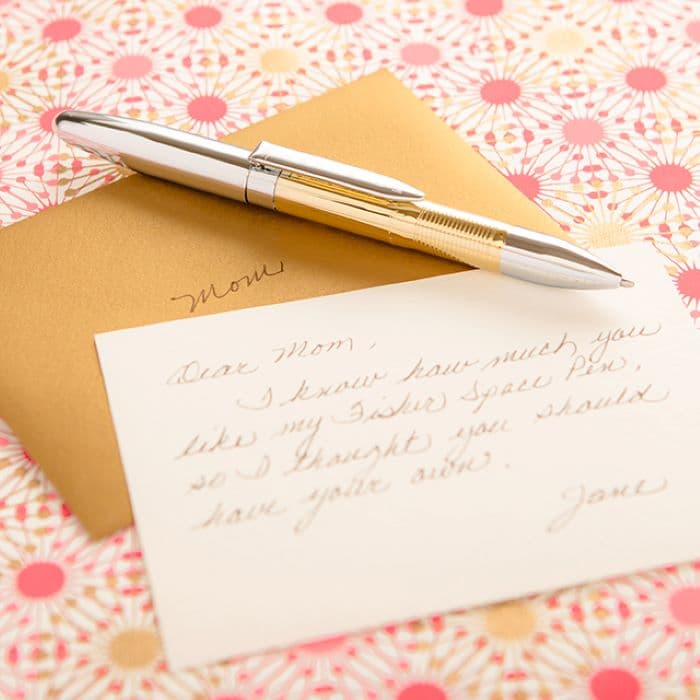 Mom
Dear Mom,
I know how much you
like my Fisher Space Pen,
so I thought you should
have your own.
Jane